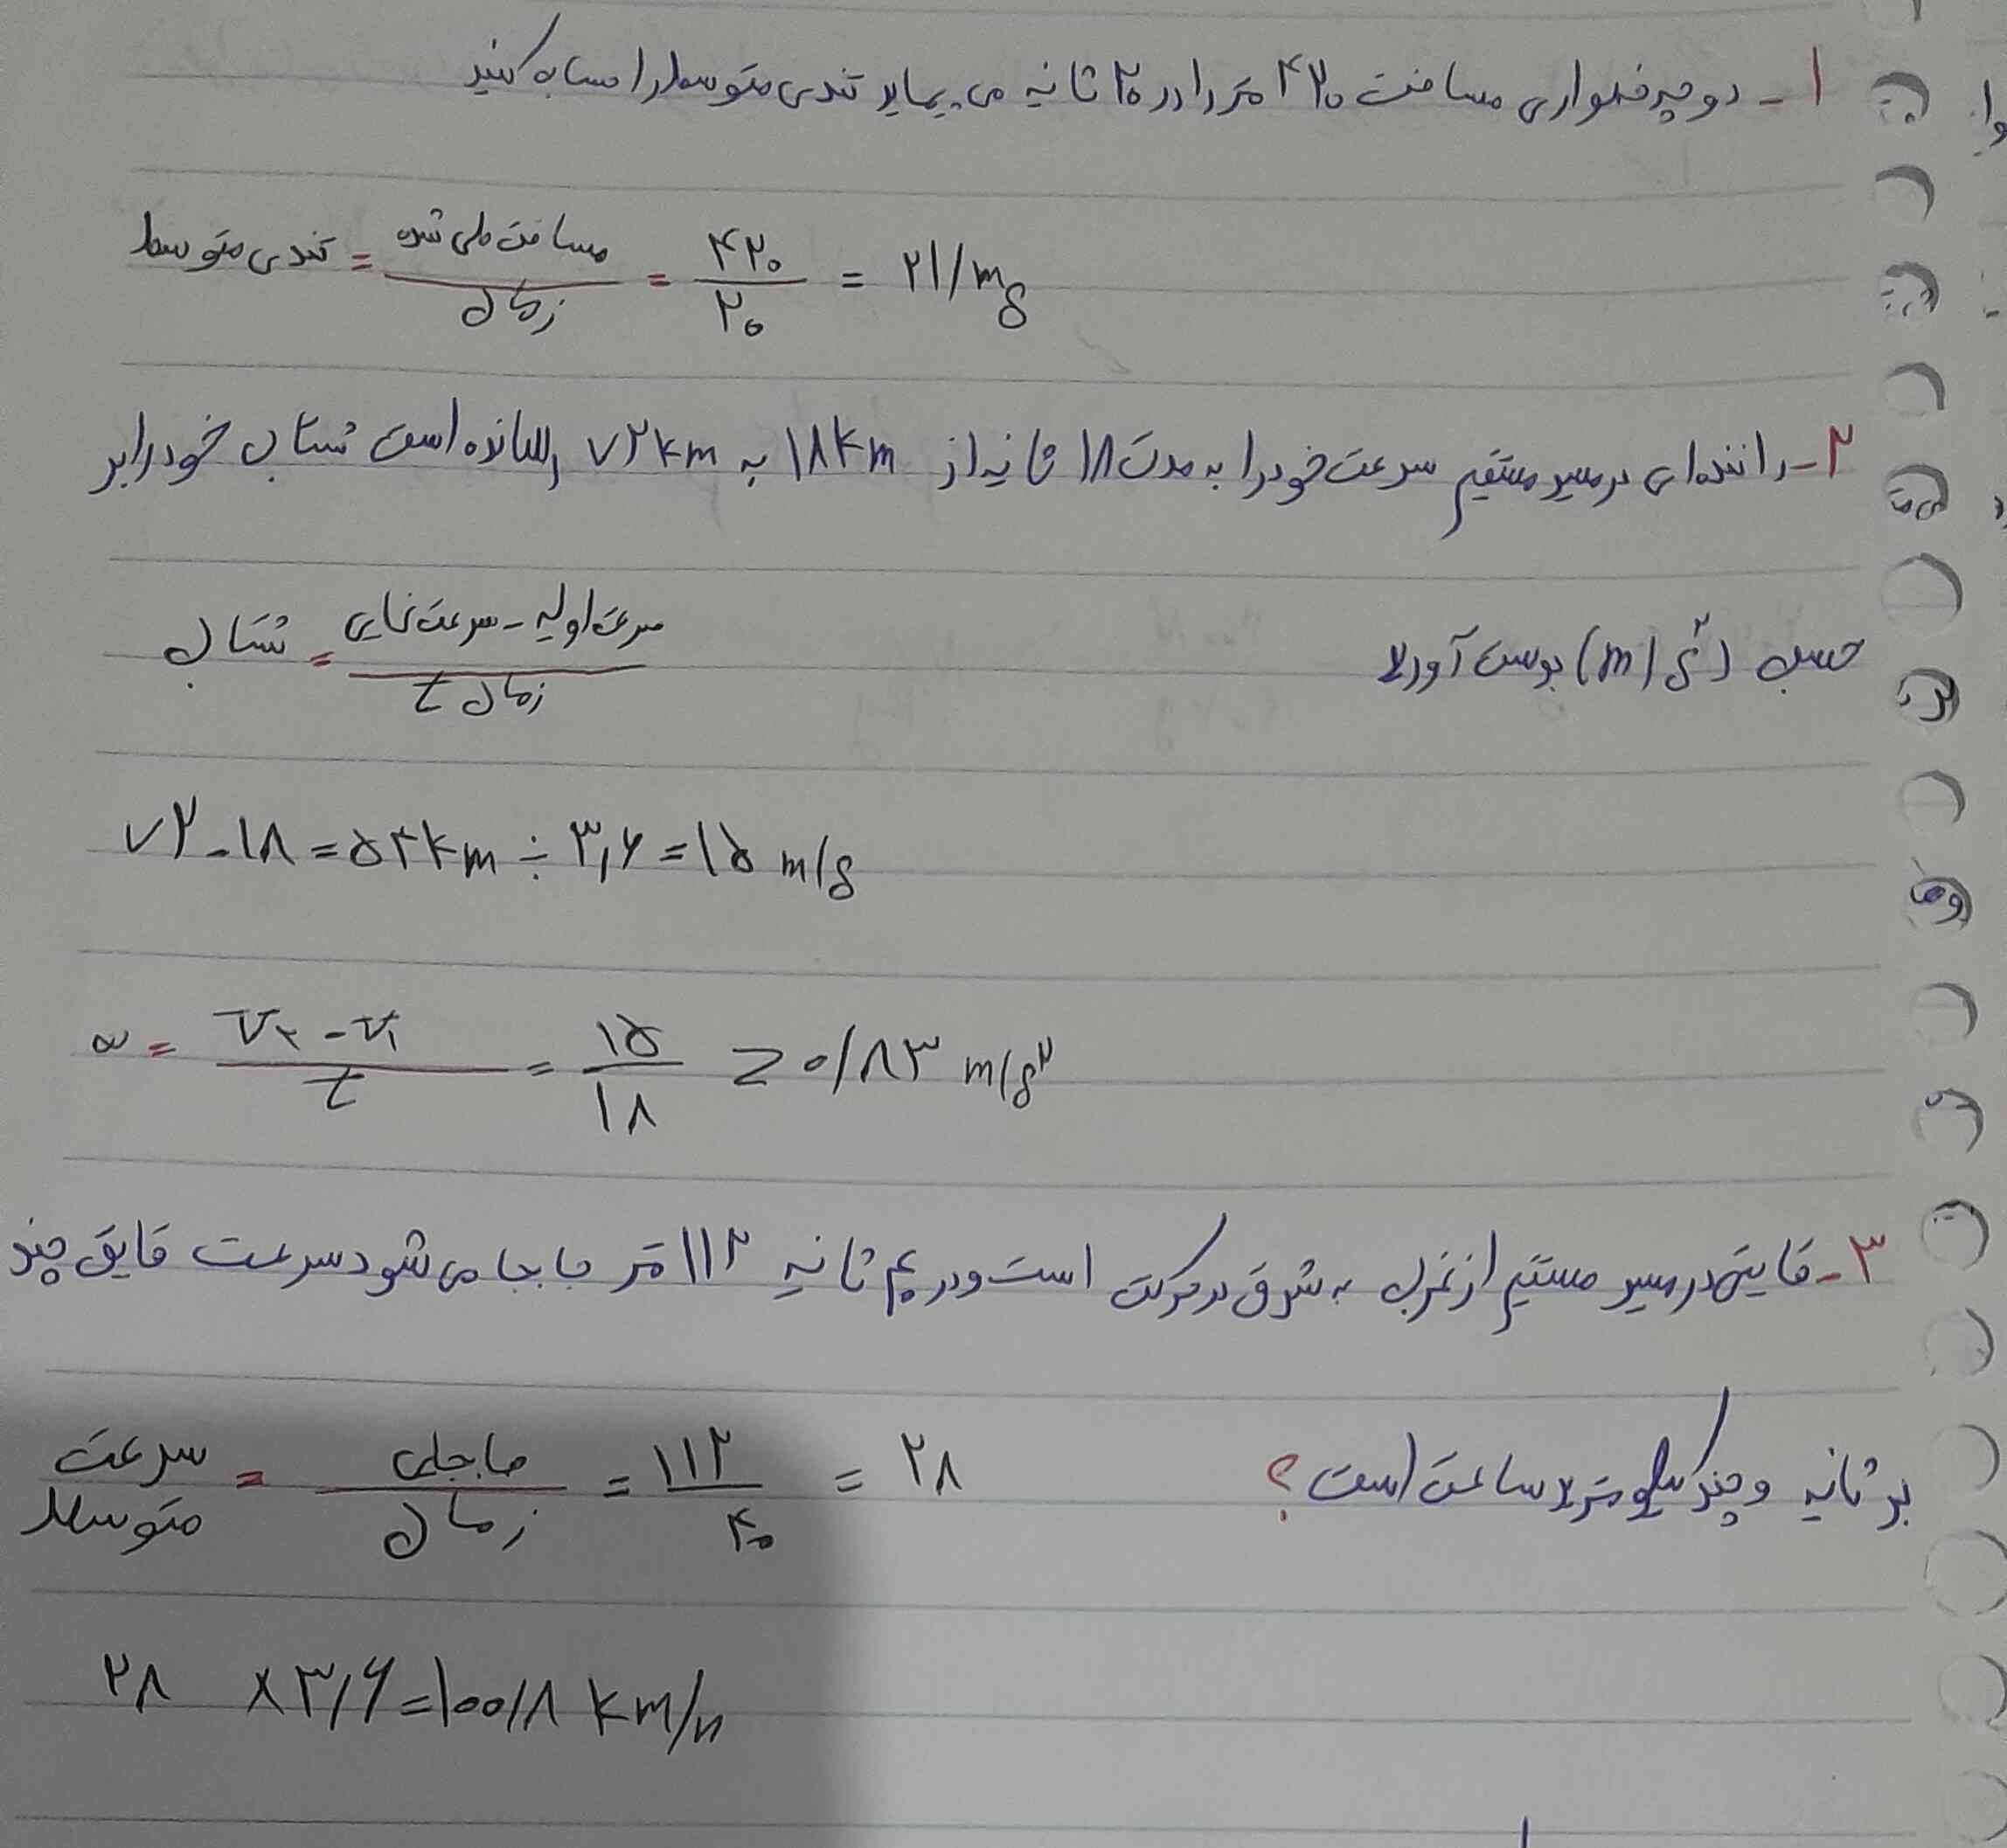 ۱- دوچرخه‌سواری مسافت ۴۲۰ متر را در ۲۰ ثانیه می‌پیماید تندی متوسط را محاسبه کنید
تندی متوسط = مسافت طی شده / زمان = ۴۲۰ / ۲۰ = ۲۱ / m s
۲- راننده‌ای در مسیر مستقیم سرعت خود را به مدت ۱۸ ثانیه از ۱۸ km به ۷۲ km رسانده است شتاب خود را بر
حسب (m/s²) بدست آورید
شتاب = سرعت اولیه - سرعت نهایی / زمان t
۷۲ - ۱۸ = ۵۴ km ÷ ۳,۶ = ۱۵ m/s
a = V₂ - V₁ / t = ۱۵ / ۱۸ = ۰/۸۳ m/s²
۳- قایقی در مسیر مستقیم از غرب به شرق در حرکت است و در ۴۰ ثانیه ۱۱۲ متر جابجا می‌شود سرعت قایق چند
بر ثانیه و چند کیلومتر بر ساعت است؟
سرعت متوسط = جابجایی / زمان = ۱۱۲ / ۴۰ = ۲۸
۲۸ × ۳/۶ = ۱۰۰/۸ km/h